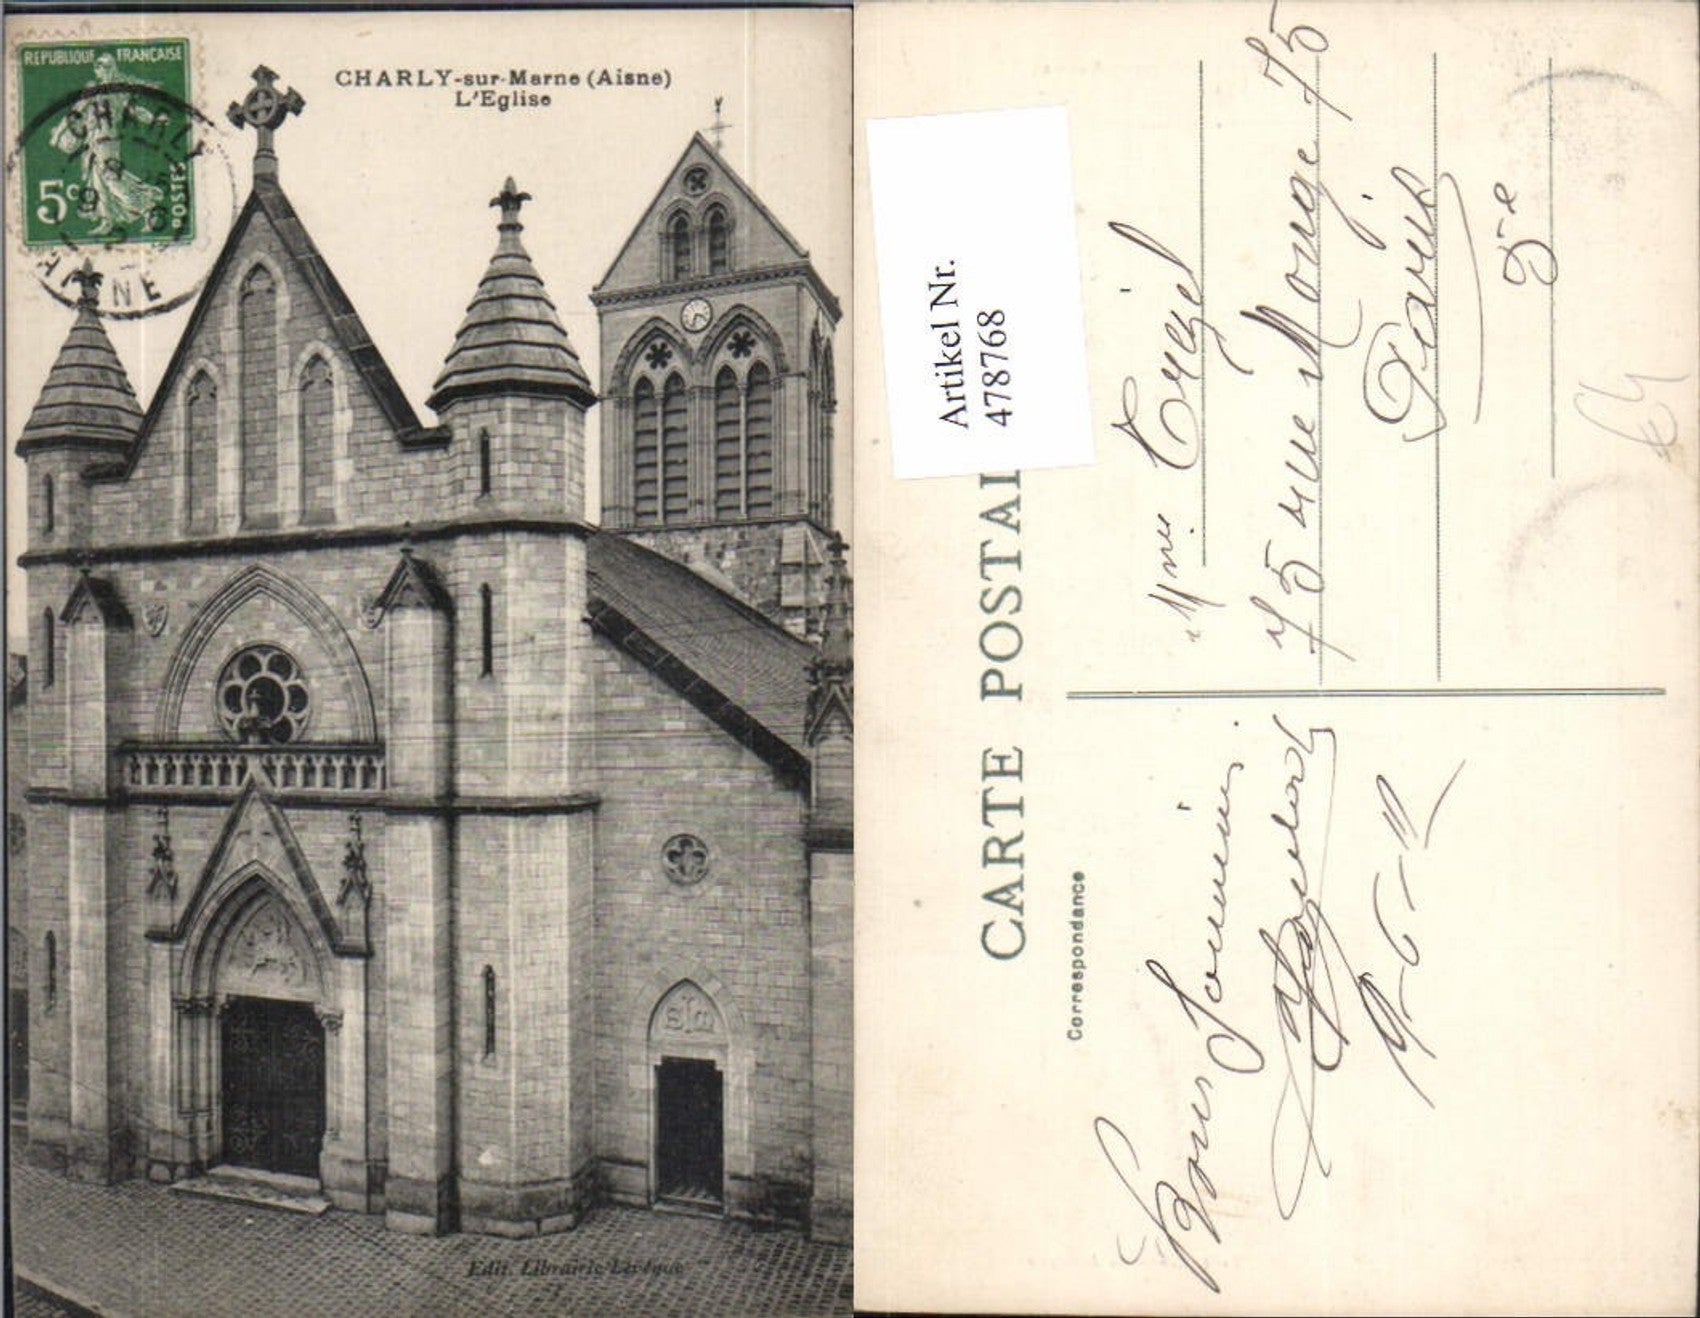 REPUBLIQUE FRANÇAISE
5c
POSTES
CHARLY
AISNE
CHARLY-sur-Marne (Aisne)
L'Eglise
Edit. Librairie Lévêque
Artikel Nr.
478768
CARTE POSTAL
Correspondance
Mme
75 rue Monge 75
Paris
5e
Bons Souvenirs.
9-6-11